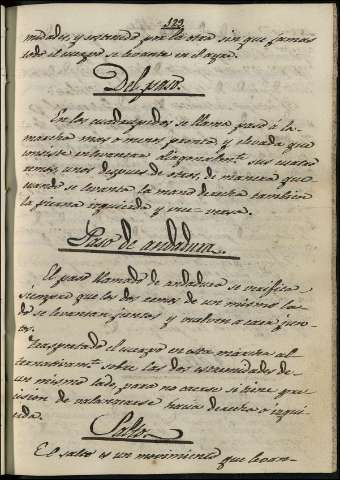 122
midades, y sostenido por la otra sin que jamas
todo el cuerpo se levante en el ayre.
Del paso.
En los cuadrupedos se llama paso á la
marcha mas o menos pronta y elevada que
consiste en levantar diagonalmte sus cuatro
remos, unos despues de otros, de manera que
cuando se levanta la mano derecha tambien
la pierna izquierda y vice-versa.
Paso de andadura.
El paso llamado de andadura se verifica
siempre que los dos remos de un mismo la-
do se levantan juntos y vuelven a caer jun-
tos.
Trasportado el cuerpo en esta marcha al
ternativamte sobre las dos extremidades de
un mismo lado, para no caerse si tiene pre-
cision de balancearse hacia derecha o izqui-
erda.
Salto.
El salto es un movimiento que levan-